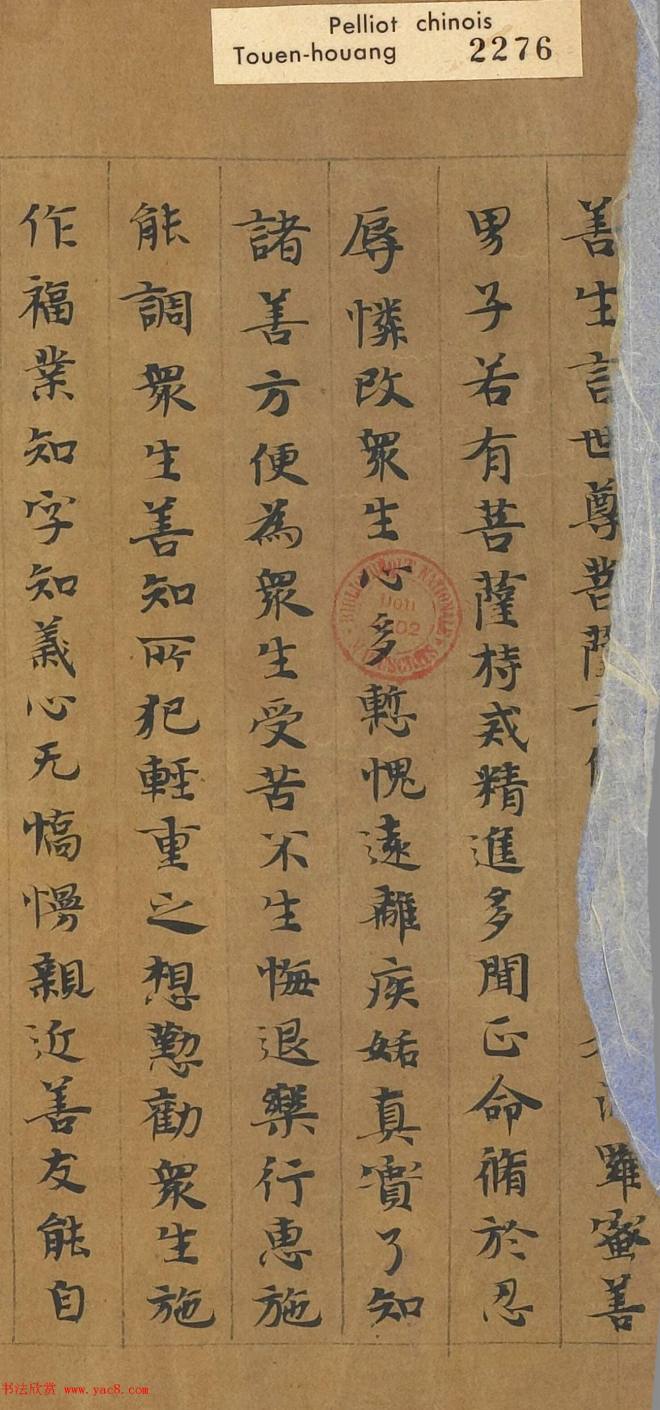 Pelliot chinois
Touen-houang 2276
善生言世尊菩薩
羅蜜善
男子若有菩薩持戒精進多聞正命脩於忍
辱憐愍眾生心多慙愧遠離疾妬真實了知
諸善方便為眾生受苦不生悔退樂行惠施
能調眾生善知所犯輕重之想懃勸眾生施
作福業知字知義心无憍慢親近善友能自
书法欣赏 www.yac8.com